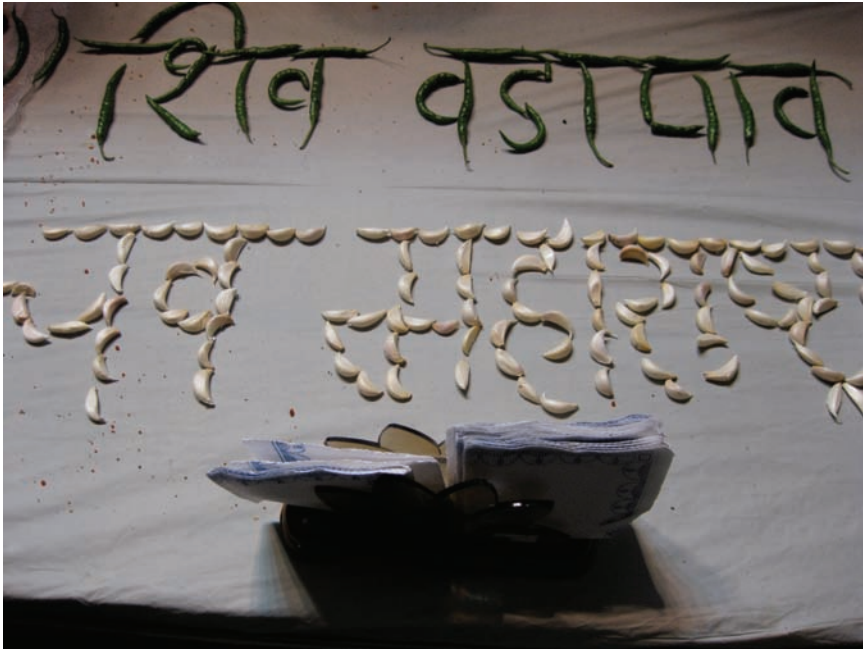 शिव वडापाव
नव महाराष्ट्र